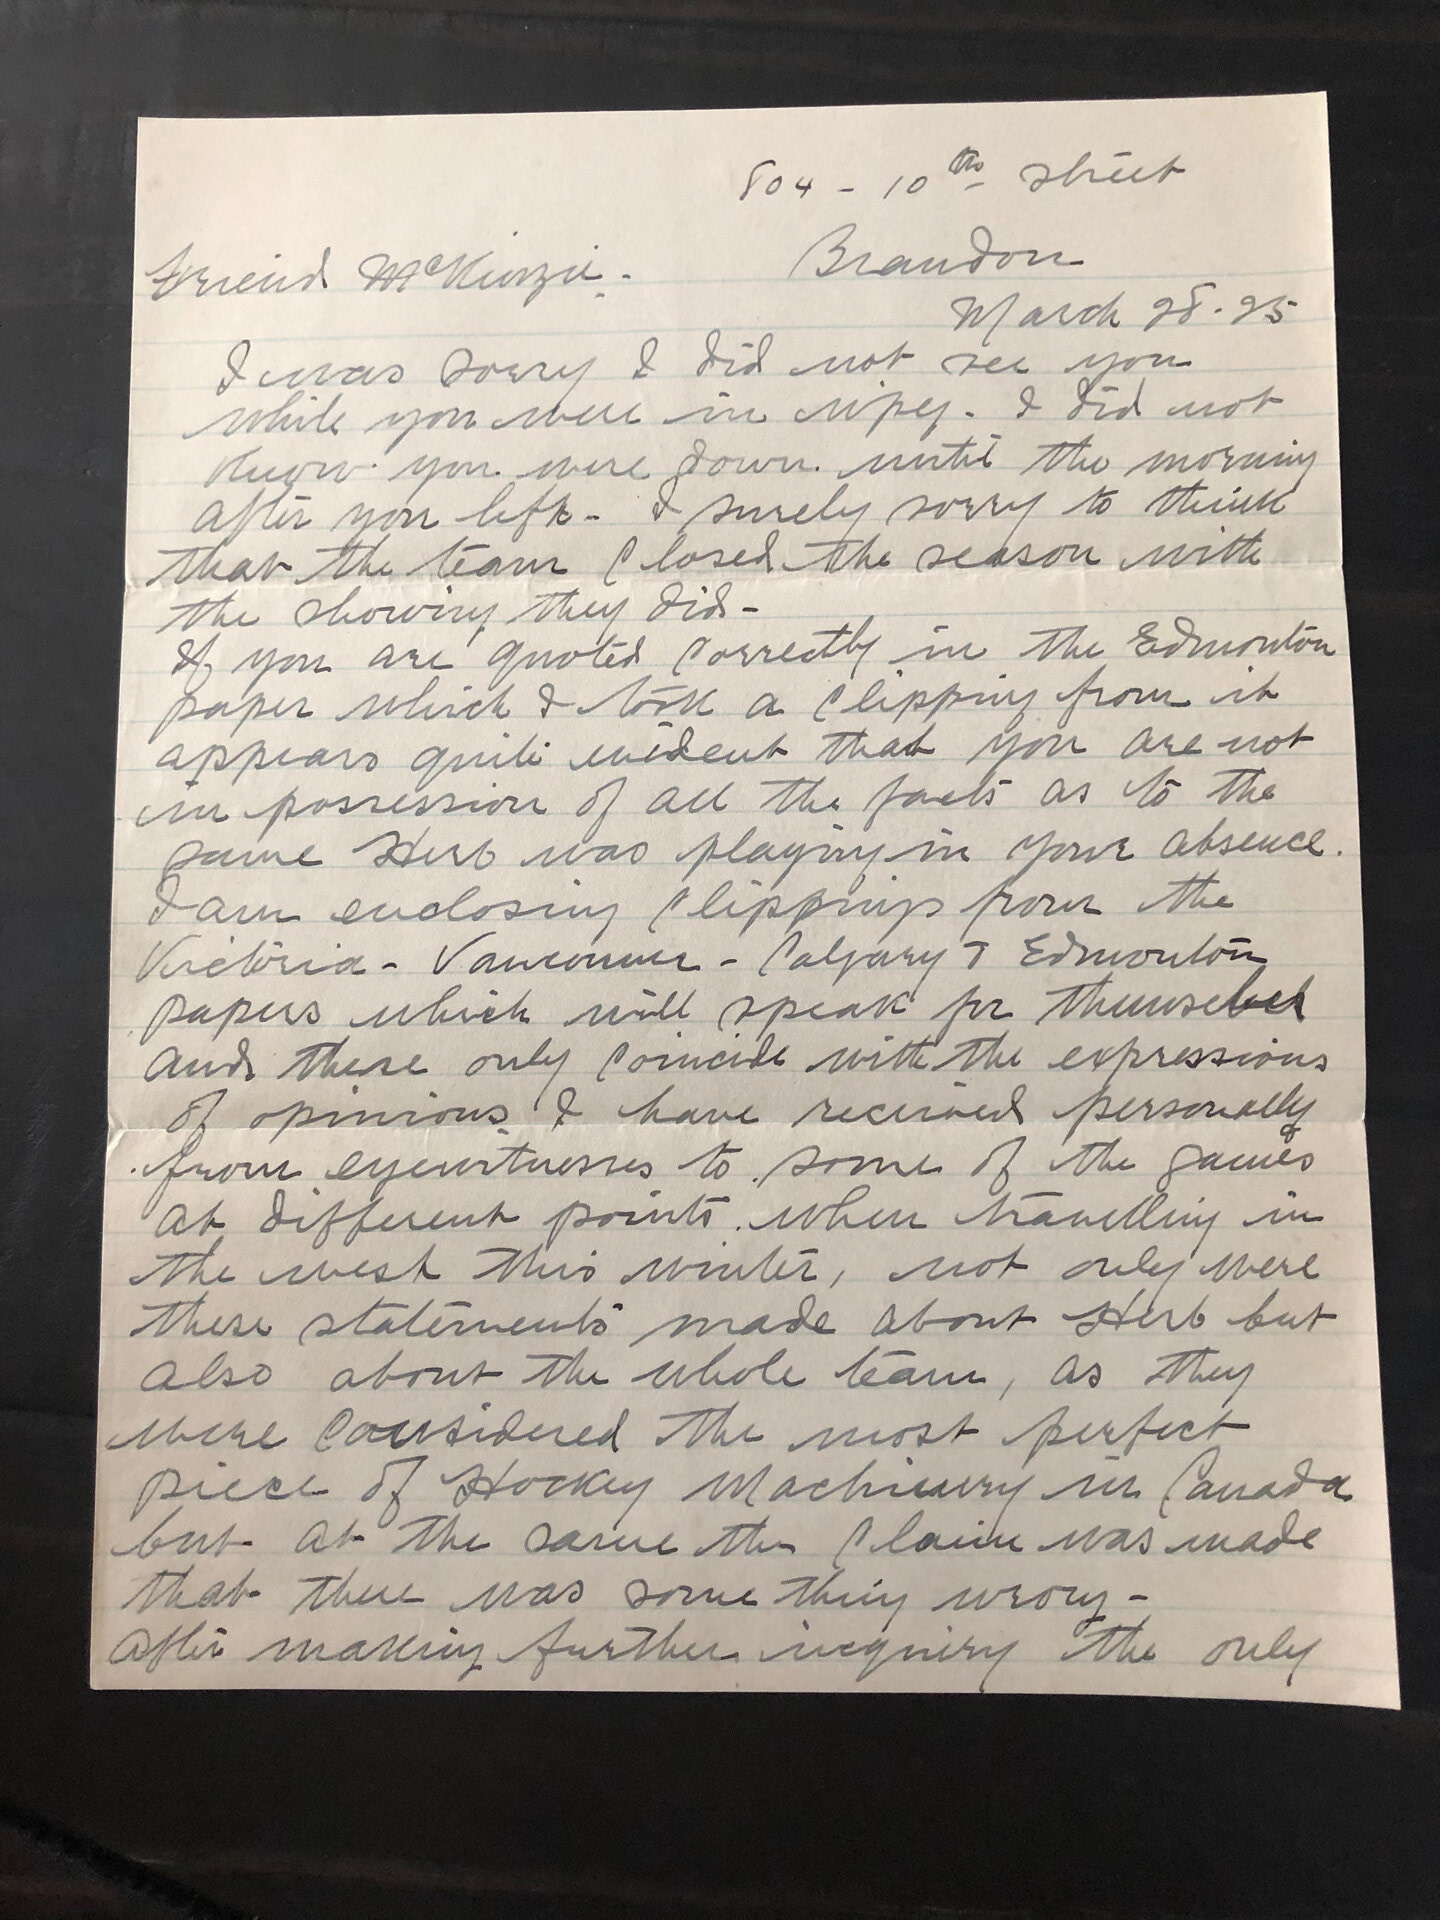 804 - 10th street
Brandon
Friend McKinzie.
March 28-25
I was sorry I did not see you
while you were in wpeg. I did not
know you were down until the morning
after you left - I surely sorry to think
that the team Closed the season with
the showing they did -
If you are quoted Correctly in the Edmonton
paper which I took a Clipping from it
appears quite evident that you are not
in possession of all the facts as to the
game Herb was playing in your absence.
I am enclosing Clippings from the
Victoria - Vancouver - Calgary & Edmonton
papers which will speak for themselves
and these only Coincide with the expressions
of opinions I have received personally
from eyewitnesses to some of the games
at different points when travelling in
the west this winter, not only were
these statements made about Herb but
also about the whole team, as they
were Considered the most perfect
piece of Hockey Machinery in Canada
but at the same the Claim was made
that there was some thing wrong -
After making further inquiry the only